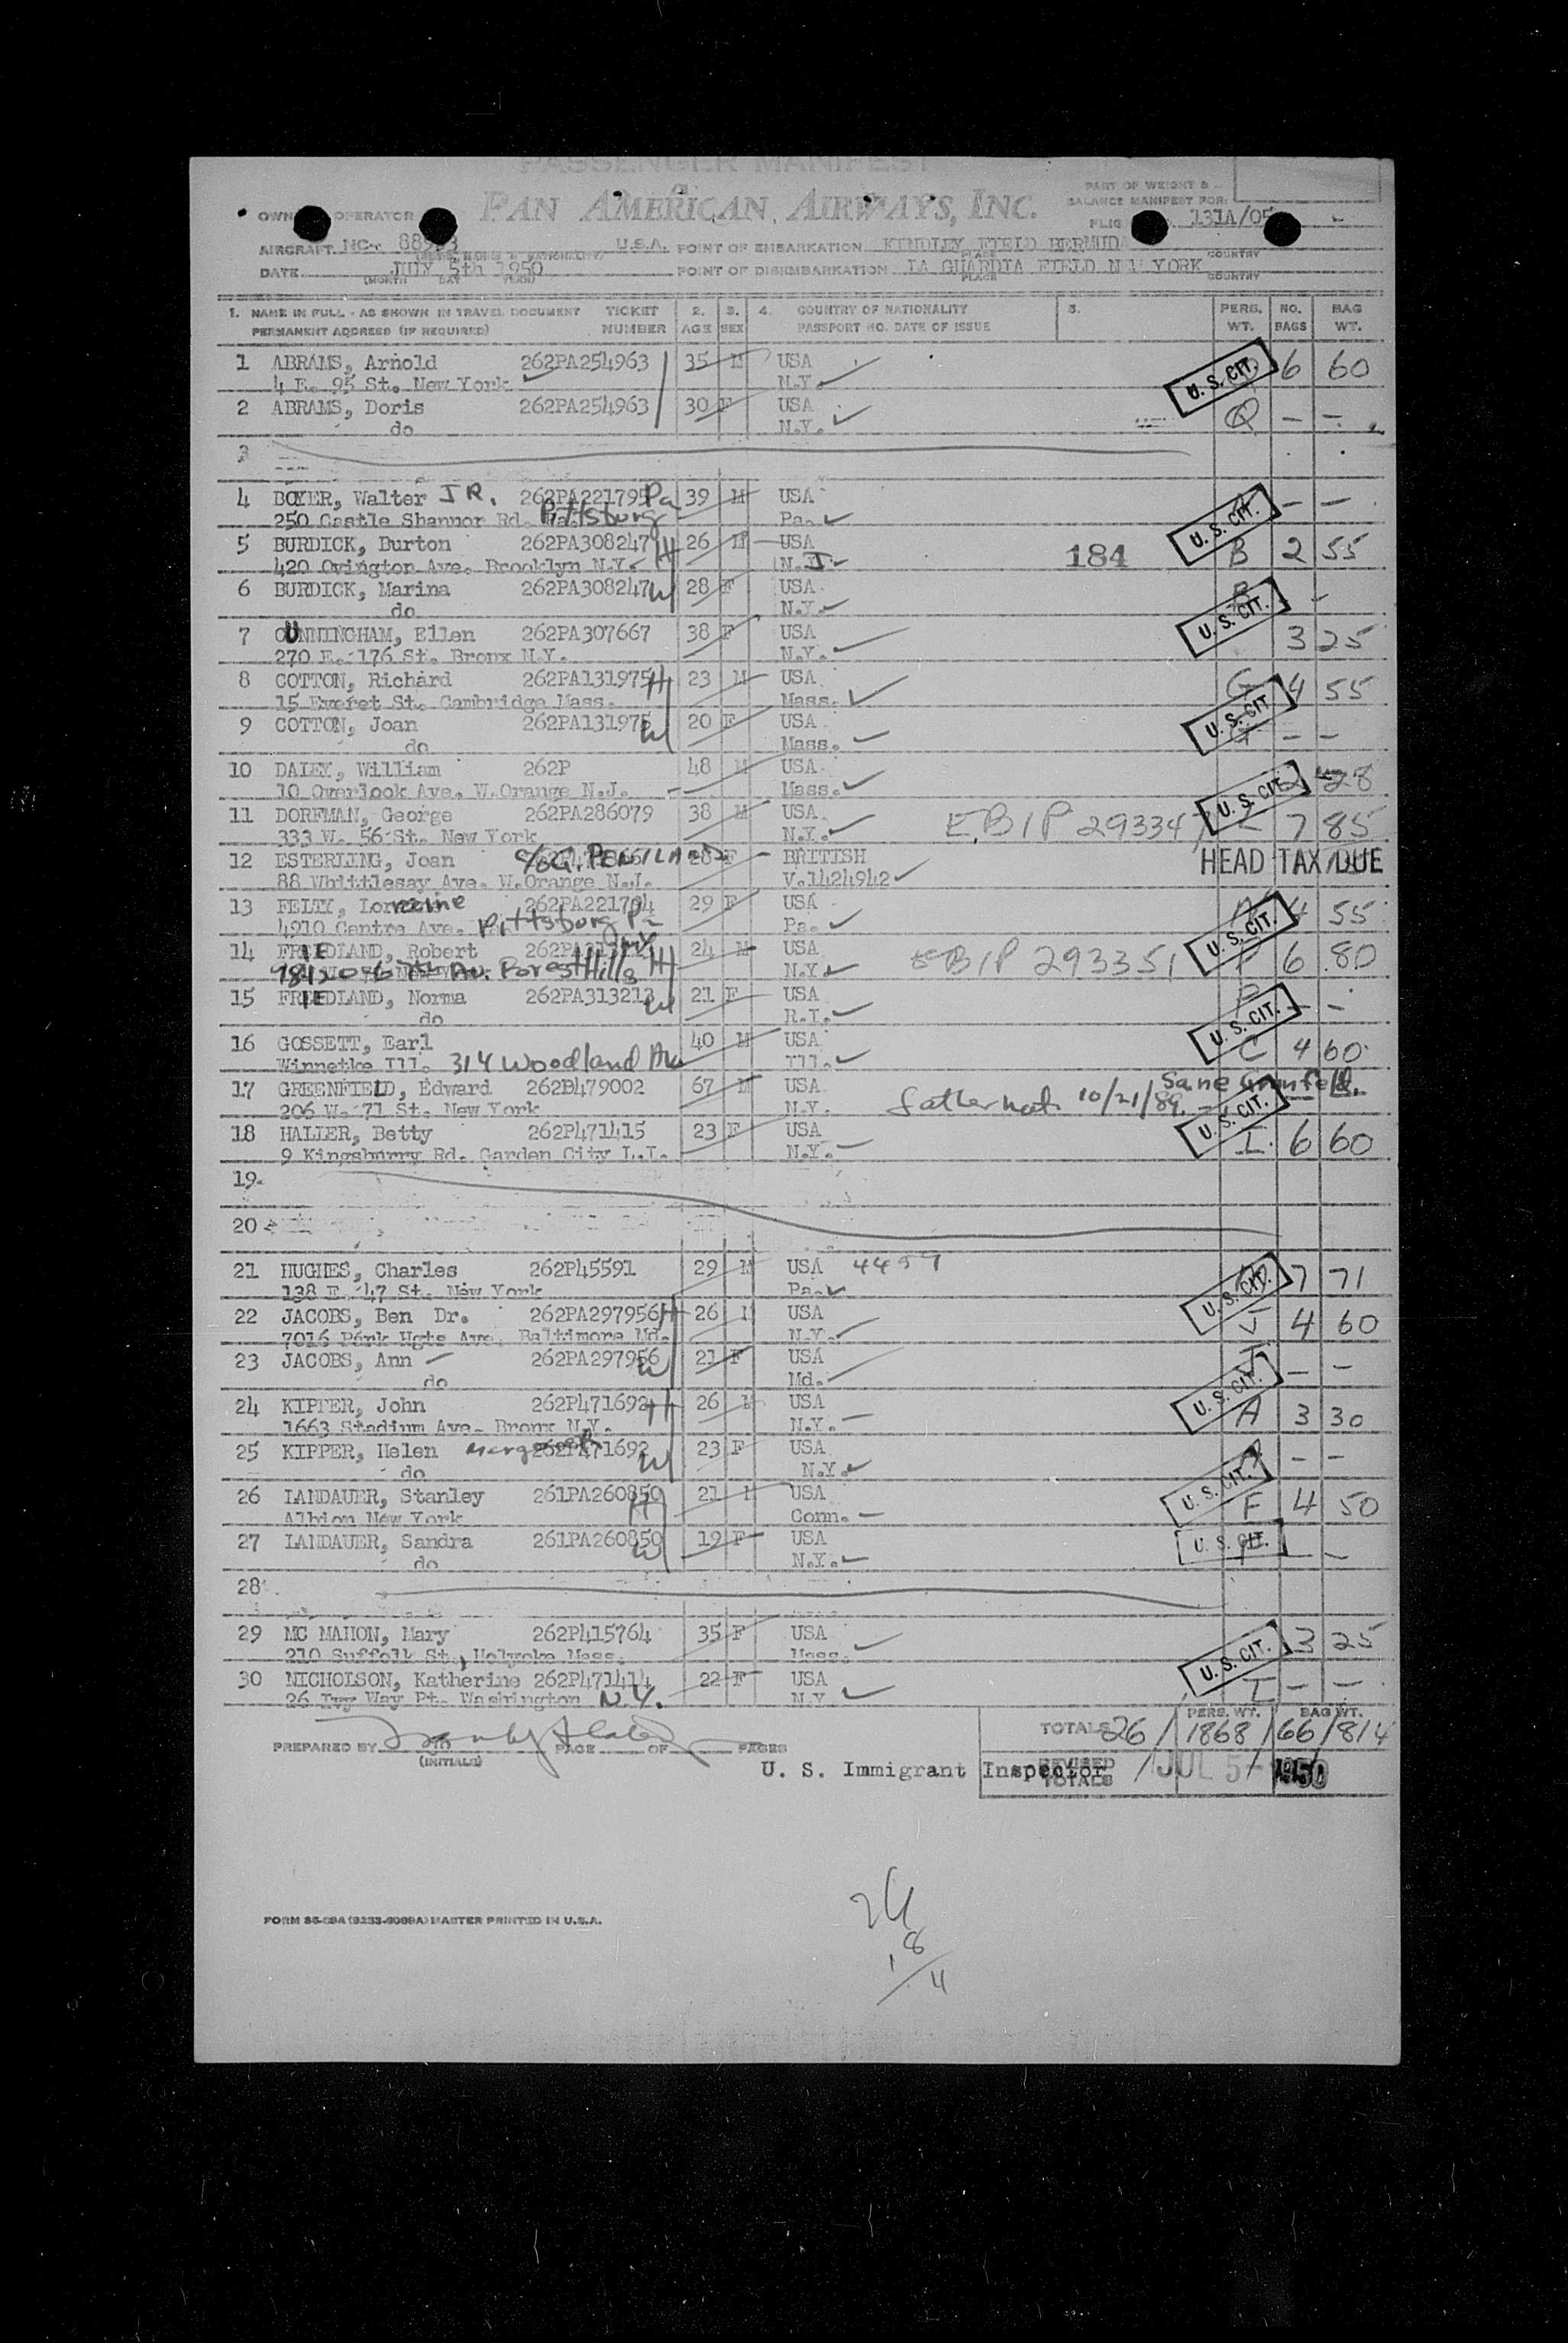 PASSENGER MANIFEST
PAN AMERICAN AIRWAYS, INC.
PART OF WEIGHT &
BALANCE MANIFEST FOR:
OPERATOR
131A/05
AIRCRAFT NC- U.S.A. POINT OF EMBARKATION KINDLEY FIELD BERMUDA
PLACE COUNTRY
DATE JULY 5th 1950 POINT OF DISEMBARKATION LA GUARDIA FIELD NEW YORK
(MONTH DAY YEAR) PLACE COUNTRY
1. NAME IN FULL - AS SHOWN IN TRAVEL DOCUMENT TICKET 2. 3. 4. COUNTRY OF NATIONALITY 5. PERS. NO. BAG
PERMANENT ADDRESS (IF REQUIRED) NUMBER AGE SEX PASSPORT NO. DATE OF ISSUE WT. BAGS WT.
1 ABRAMS, Arnold 262PA254963 35 M USA U.S. CIT. 6 60
4 E. 95 St. New York N.Y.
2 ABRAMS, Doris 262PA254963 30 F USA Q - -
do N.Y.
3
4 BOYER, Walter JR. 262PA221795 Pa 39 M USA U.S. CIT. - -
250 Castle Shannor Rd. Pittsburg Pa.
5 BURDICK, Burton 262PA308247 H 26 M USA 184 B 2 55
420 Ovington Ave. Brooklyn N.Y. N.J.
6 BURDICK, Marina 262PA308247 W 28 F USA B U.S. CIT. -
do N.Y.
7 CUNNINGHAM, Ellen 262PA307667 38 F USA 3 25
270 E. 176 St. Bronx N.Y. N.Y.
8 COTTON, Richard 262PA131975 H 23 M USA G 4 55
15 Everet St. Cambridge Mass. Mass.
9 COTTON, Joan 262PA131975 W 20 F USA U.S. CIT. G - -
do Mass.
10 DALEY, William 262P 48 M USA U.S. CIT. 2 28
10 Overlook Ave. W.Orange N.J. Mass.
11 DORFMAN, George 262PA286079 38 M USA EBIP 293347 7 85
333 W. 56 St. New York N.Y.
12 ESTERLING, Joan C/O G. PENTLAND 28 F BRITISH HEAD TAX DUE
88 Whittlesay Ave. W.Orange N.J. V.1424942
13 FELTY, Lorraine 262PA221794 29 F USA U.S. CIT. 4 55
4910 Centre Ave. Pittsburg Pa Pa.
14 FRIEDLAND, Robert NY H 24 M USA EBIP 293351 P 6 80
Av. Forest Hills N.Y.
15 FRIEDLAND, Norma 262PA313213 W 21 F USA P U.S. CIT. - -
do R.I.
16 GOSSETT, Earl 40 M USA C 4 60
Winnetke Ill. 314 Woodland Av Ill.
17 GREENFIELD, Edward 262B479002 67 M USA father nat. 10/21/89
206 W. 71 St. New York N.Y. U.S. CIT.
18 HALLER, Betty 262P471415 23 F USA I. 6 60
9 Kingsburry Rd. Garden City L.I. N.Y.
19
20
21 HUGHES, Charles 262P45591 29 M USA 4459 U.S. CIT. 7 71
138 E. 47 St. New York Pa.
22 JACOBS, Ben Dr. 262PA297956 H 26 M USA J 4 60
7016 Park Hgts Ave. Baltimore Md. N.Y.
23 JACOBS, Ann 262PA297956 W 21 F USA J U.S. CIT. - -
do Md.
24 KIPPER, John 262P471692 H 26 M USA A 3 30
1663 Stadium Ave. Bronx N.Y. N.Y.
25 KIPPER, Helen 262P471692 W 23 F USA U.S. CIT. - -
do N.Y.
26 LANDAUER, Stanley 261PA260850 H 21 M USA F 4 50
Albion New York Conn.
27 LANDAUER, Sandra 261PA260850 W 19 F USA U. S. CIT. - -
do N.Y.
28
29 MC MAHON, Mary 262P415764 35 F USA U.S. CIT. 3 25
210 Suffolk St., Holyoke Mass. Mass.
30 NICHOLSON, Katherine 262P471414 22 F USA I - -
26 Ivy Way Pt. Washington N.Y. N.Y.
PERS. WT. BAG WT.
TOTALS 26 / 1868 / 66 / 814
PREPARED BY PAGE OF PAGES
(INITIALS)
U. S. Immigrant Inspector REVISED TOTALS JUL 5 - 1950
26
18
4
FORM 86-69A (9233-6069A) MASTER PRINTED IN U.S.A.